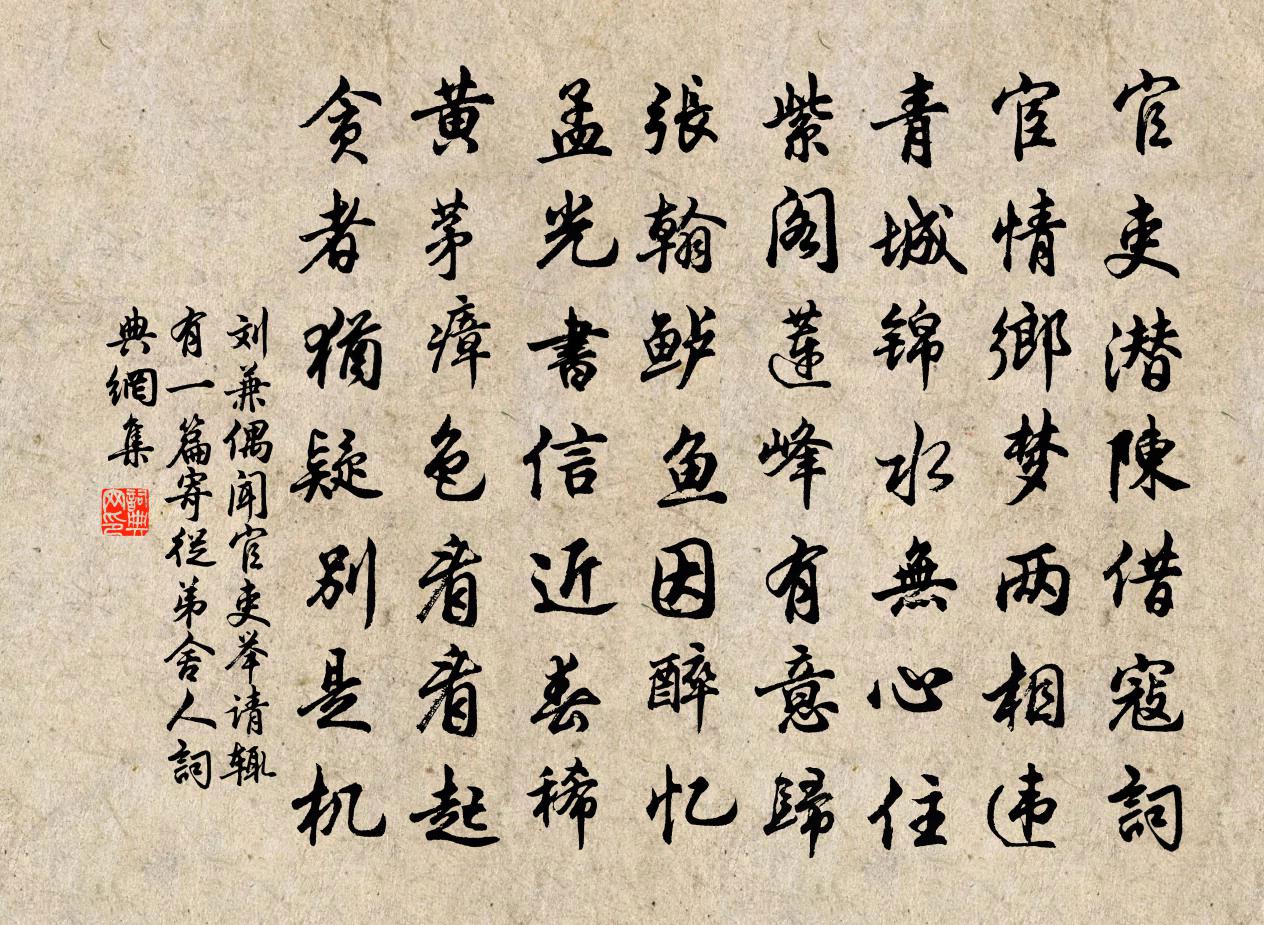 官吏潜陳借寇詞
宦情鄉梦两相违
青城锦水無心住
紫阁莲峰有意歸
張翰鲈鱼因醉忆
孟光書信近春稀
黄茅瘴色看看起
贪者猶疑别是机
刘兼偶闻官吏举请辄
有一篇寄従弟舍人詞
典網集
詞典
网印